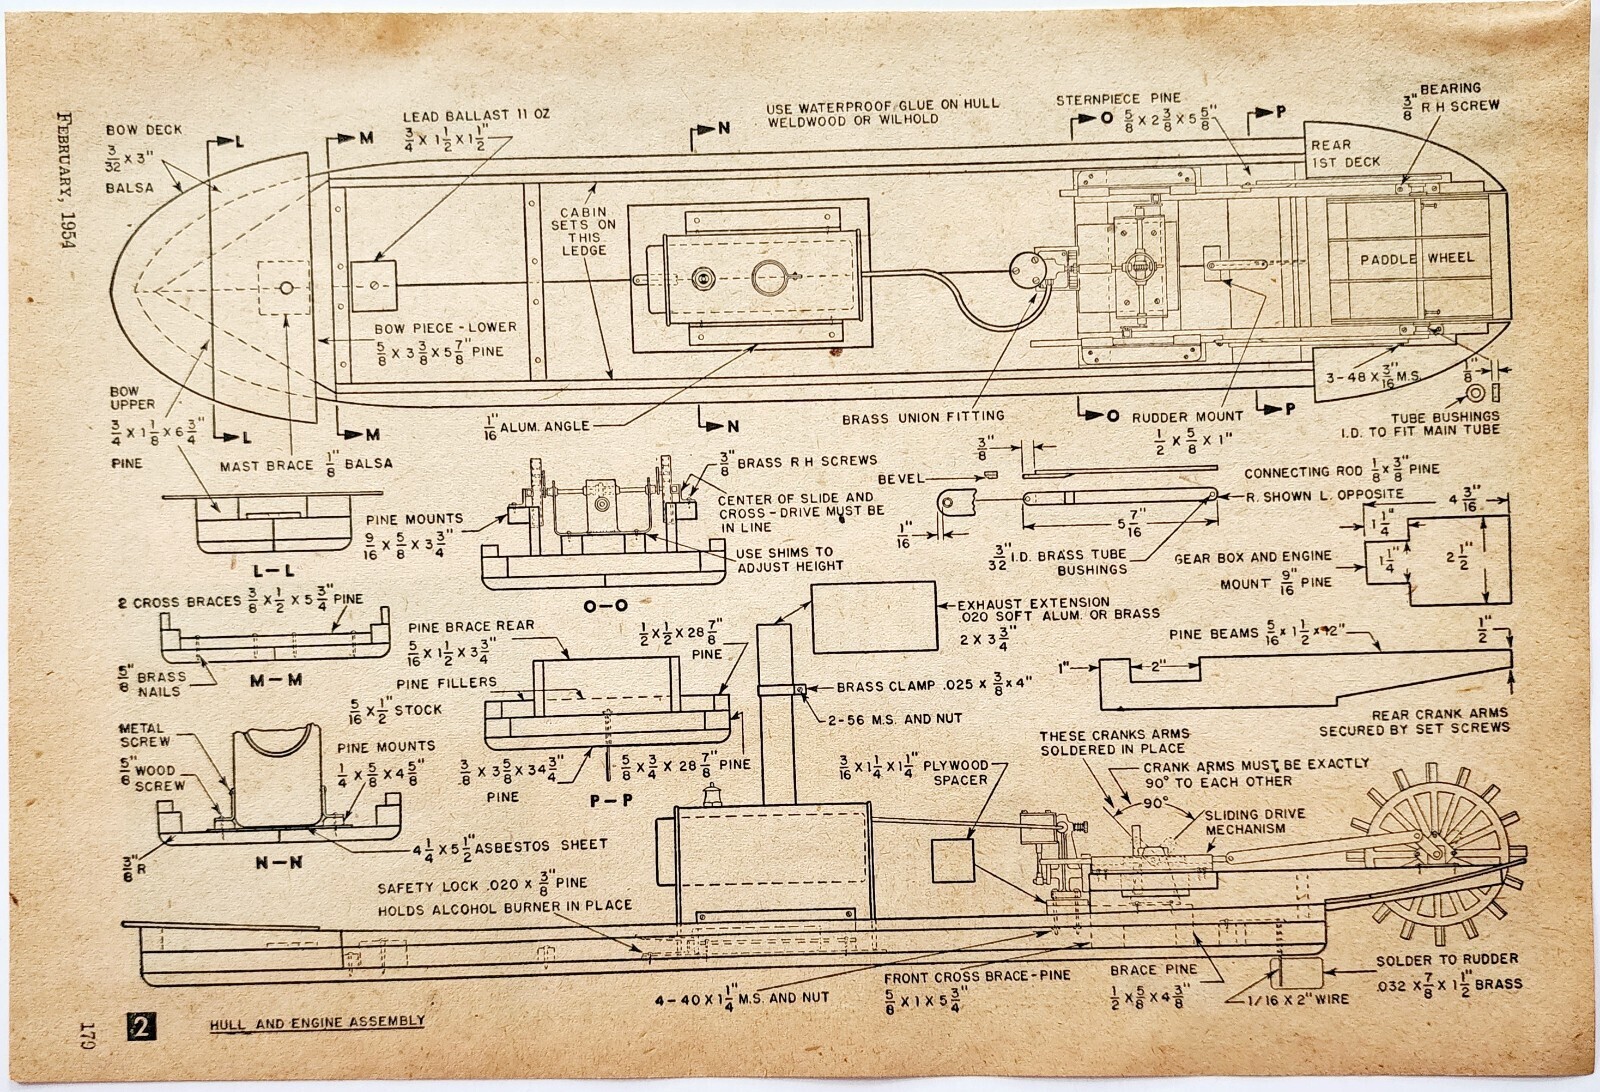 FEBRUARY, 1954
BOW DECK
3/32 X 3"
BALSA
L
M
LEAD BALLAST 11 OZ
3/4 X 1 1/2 X 1 1/2"
N
USE WATERPROOF GLUE ON HULL
WELDWOOD OR WILHOLD
STERNPIECE PINE
O 5/8 X 2 3/8 X 5 5/8"
P
BEARING
3/8" R H SCREW
REAR
1ST DECK
CABIN
SETS ON
THIS
LEDGE
PADDLE WHEEL
BOW PIECE - LOWER
5/8 X 3 3/8 X 5 7/8" PINE
BOW
UPPER
3/4 X 1 1/8 X 6 3/4"
PINE
L
M
MAST BRACE 1/8" BALSA
1/16" ALUM. ANGLE
N
BRASS UNION FITTING
O
RUDDER MOUNT
1/2 X 5/8 X 1"
P
3-48 X 3/16" M.S.
1/8"
TUBE BUSHINGS
I.D. TO FIT MAIN TUBE
L-L
PINE MOUNTS
9/16 X 5/8 X 3 3/4"
3/8" BRASS R H SCREWS
CENTER OF SLIDE AND
CROSS-DRIVE MUST BE
IN LINE
USE SHIMS TO
ADJUST HEIGHT
O-O
3/8"
BEVEL
1/16"
5 7/16"
3/32" I.D. BRASS TUBE
BUSHINGS
CONNECTING ROD 1/8 X 3/8" PINE
R. SHOWN L. OPPOSITE
4 3/16"
1 1/4"
1 1/4"
2 1/2"
GEAR BOX AND ENGINE
MOUNT 9/16" PINE
2 CROSS BRACES 3/8 X 1/2 X 5 3/4" PINE
5/8" BRASS
NAILS
M-M
PINE BRACE REAR
5/16 X 1 1/2 X 3 3/4"
1/2 X 1/2 X 28 7/8"
PINE
PINE FILLERS
5/16 X 1/2" STOCK
3/8 X 3 5/8 X 34 3/4"
PINE
5/8 X 3/4 X 28 7/8" PINE
P-P
EXHAUST EXTENSION
.020 SOFT ALUM. OR BRASS
2 X 3 3/4"
BRASS CLAMP .025 X 3/8 X 4"
2-56 M.S. AND NUT
PINE BEAMS 5/16 X 1 1/2 X 12"
1/2"
1"
2"
REAR CRANK ARMS
SECURED BY SET SCREWS
METAL
SCREW
5/8" WOOD
SCREW
PINE MOUNTS
1/4 X 5/8 X 4 5/8"
3/8" R
N-N
4 1/4 X 5 1/2" ASBESTOS SHEET
3/16 X 1 1/4 X 1 1/4" PLYWOOD
SPACER
THESE CRANKS ARMS
SOLDERED IN PLACE
CRANK ARMS MUST BE EXACTLY
90° TO EACH OTHER
90°
SLIDING DRIVE
MECHANISM
SAFETY LOCK .020 X 3/8" PINE
HOLDS ALCOHOL BURNER IN PLACE
4-40 X 1 1/4" M.S. AND NUT
FRONT CROSS BRACE-PINE
5/8 X 1 X 5 3/4"
BRACE PINE
1/2 X 5/8 X 4 3/8"
1/16 X 2" WIRE
SOLDER TO RUDDER
.032 X 7/8 X 1 1/2" BRASS
179
2
HULL AND ENGINE ASSEMBLY